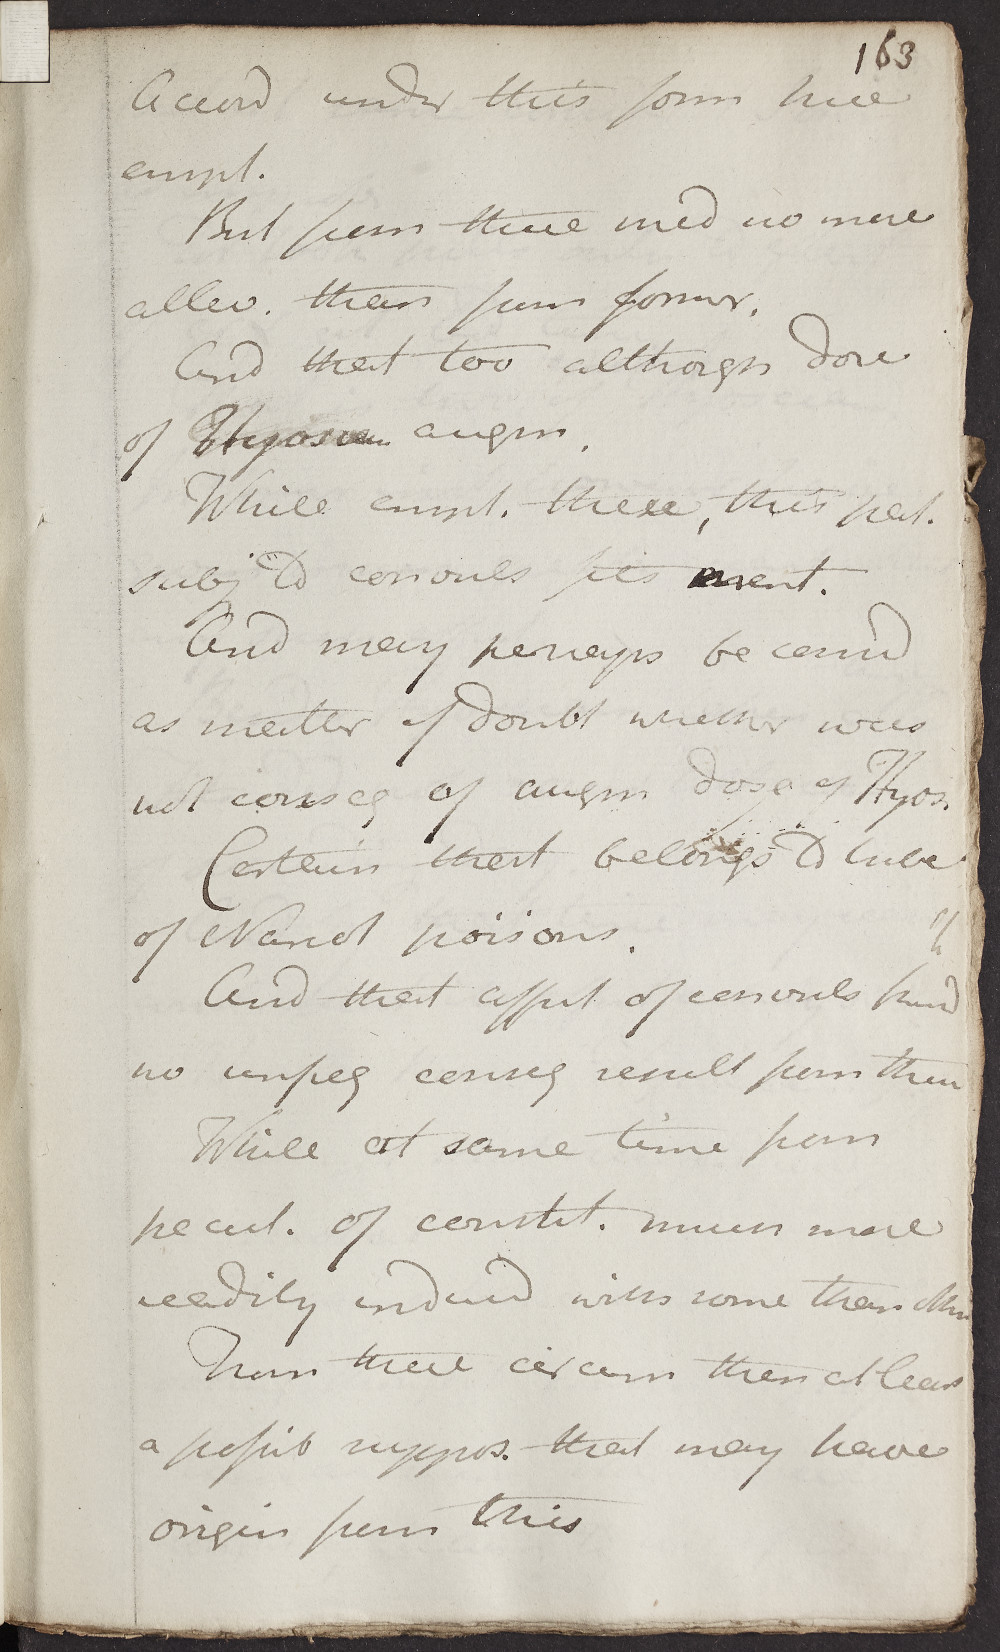 163
Accord under this form here
empl.
But from these med no more
allev. than from former.
And that too although dose
of Hyoscia augm.
While empl. these, this pat.
subj to convuls fits event.
And may perhaps be consid
as matter of doubt whether was
not conseq of augm dose of Hyos.
Certain that belongs to tribe
of Narcot poisons.
And that affect of convuls kind
no unfreq conseq result from them
While at same time from
pecul. of constit. much more
readily induced with some than others
From these circum then at least
a possib suppos. that may have
origin from this